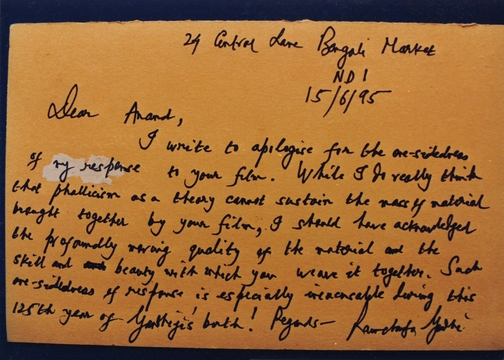 24 Central Lane Bengali Market
ND 1
15/6/95
Dear Anand,
I write to apologise for the one-sidedness
of my response to your film. While I do really think
that phallicism as a theory cannot sustain the mass of material
brought together by your film, I should have acknowledged
the profoundly moving quality of the material and the
skill and beauty with which you weave it together. Such
one-sidedness of response is especially inexcusable during this
125th year of Gandhiji's birth! Regards— Ramchandra Gandhi